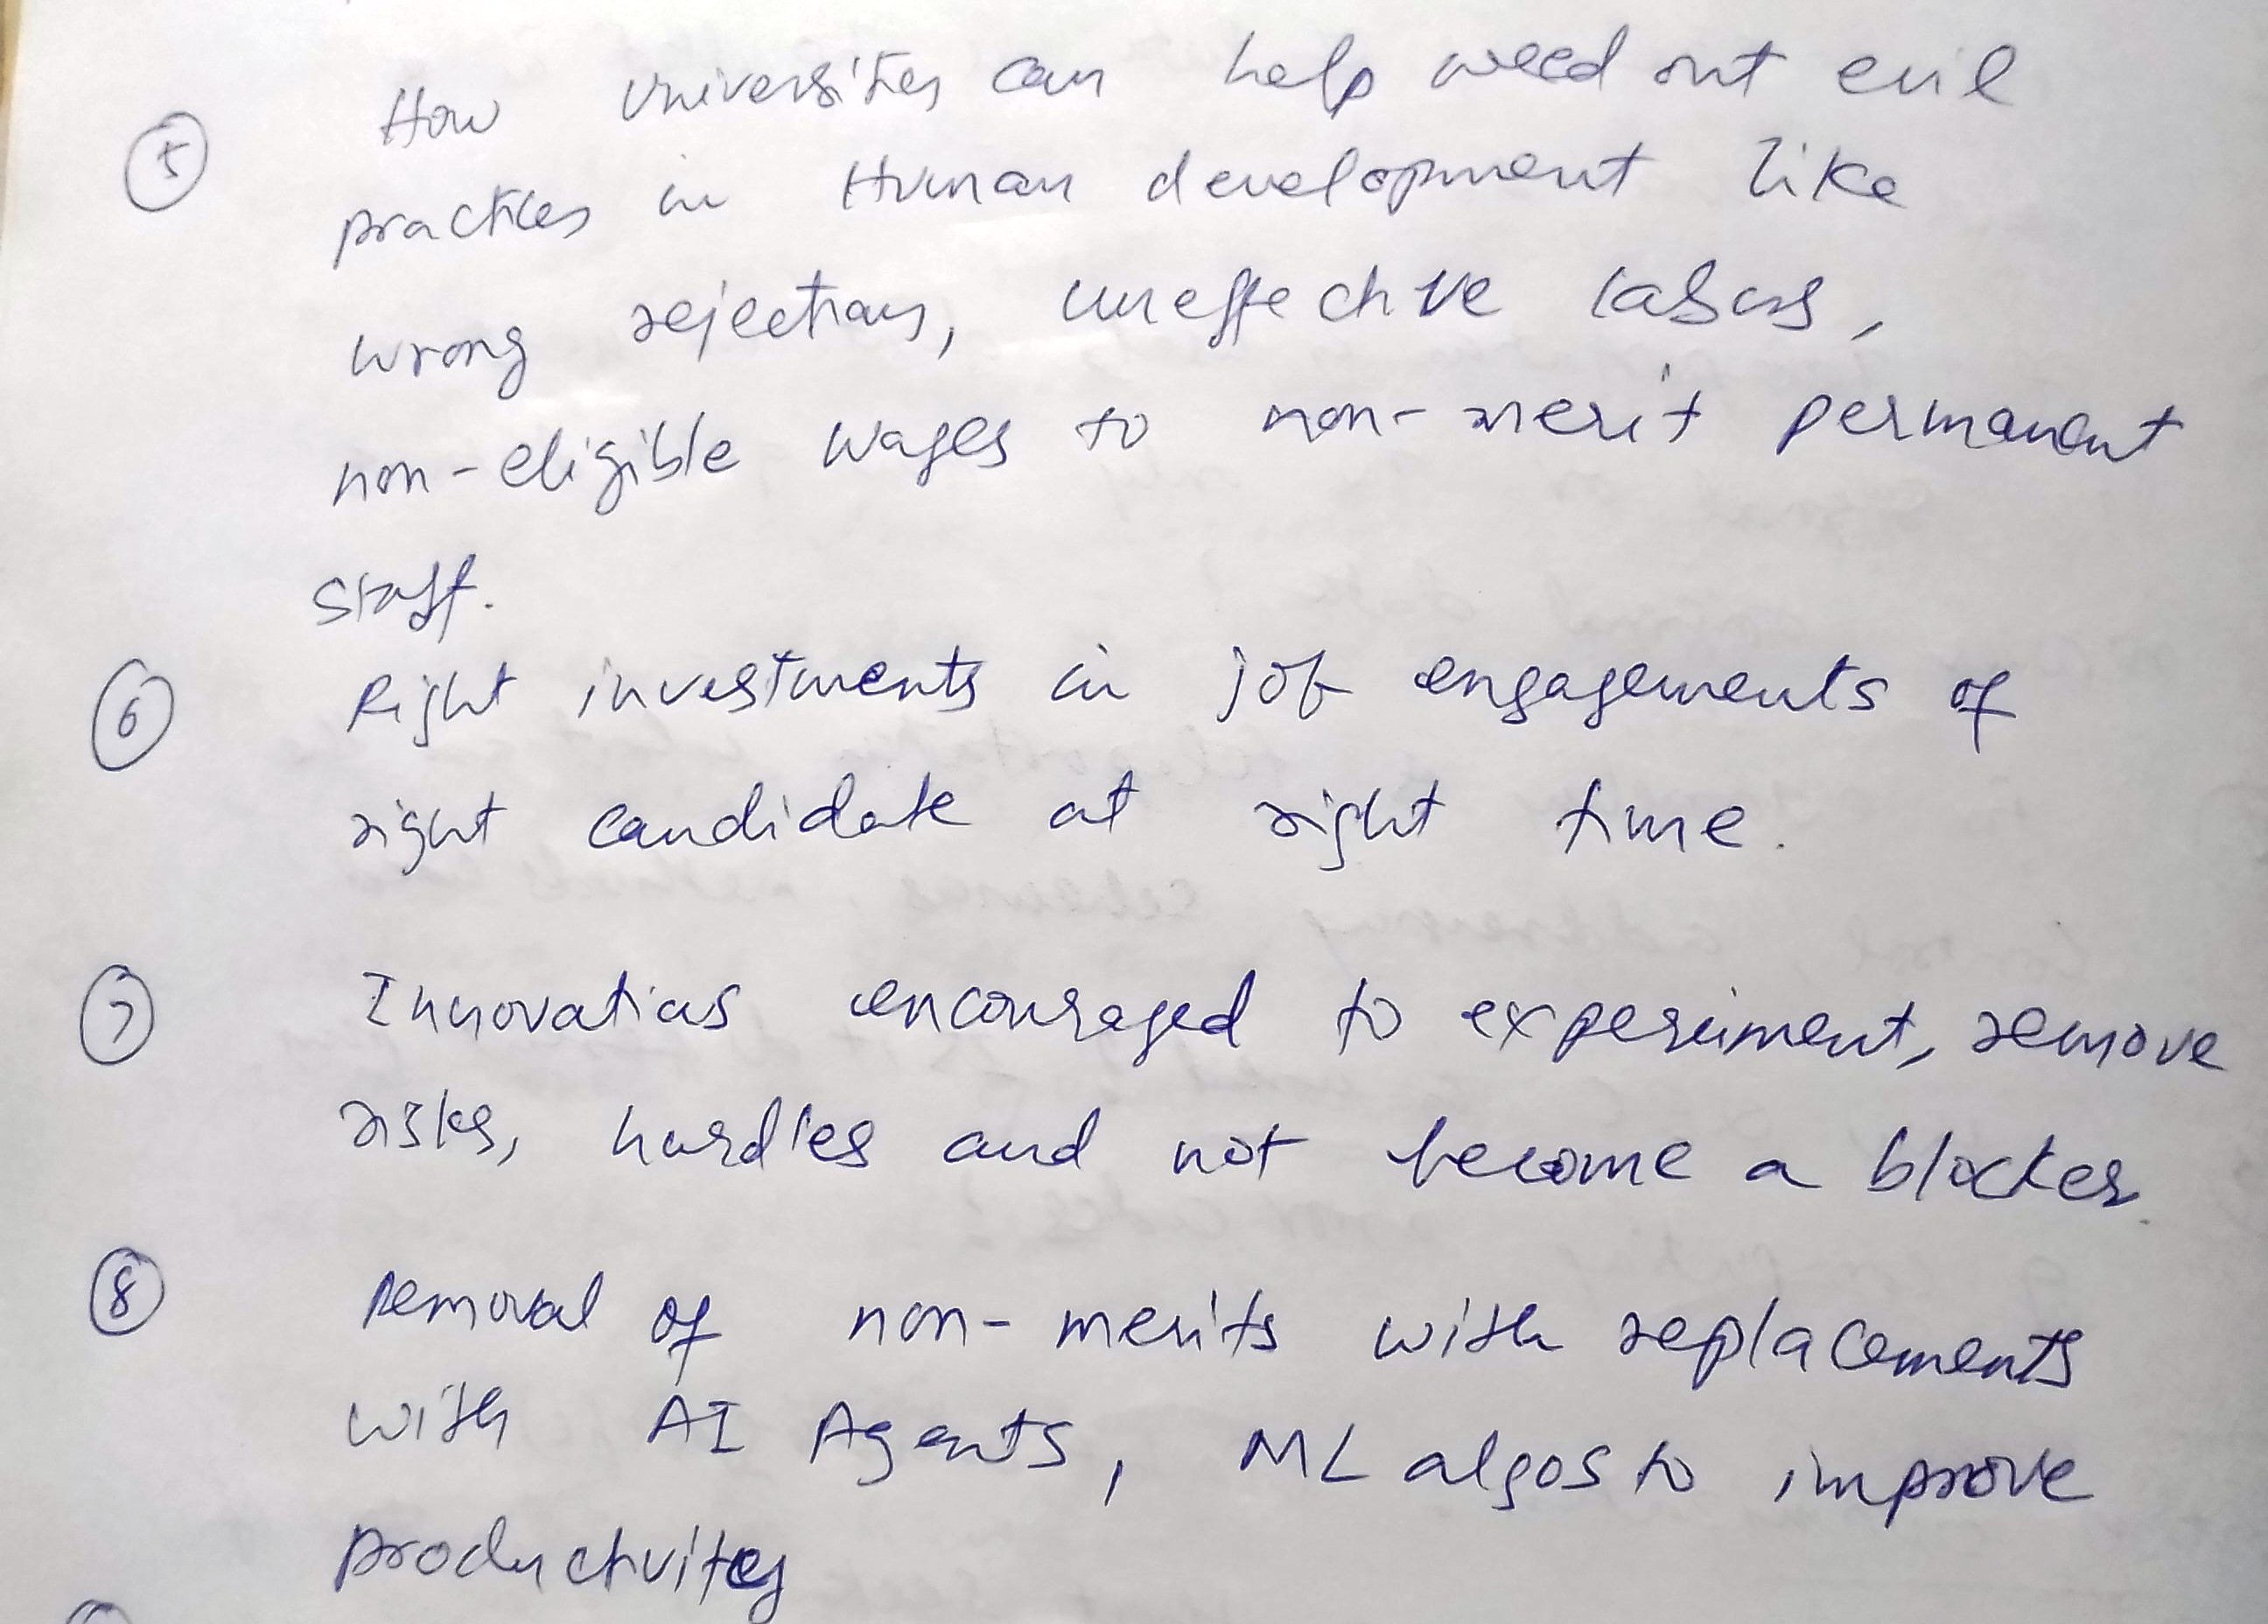 ⑤ How Universities can help weed out evil
practices in Human development like
wrong rejections, uneffective labors,
non-eligible wages to non-merit permanent
staff.
⑥ Right investments in job engagements of
right candidate at right time.
⑦ Innovations encouraged to experiment, remove
risks, hurdles and not become a blocker.
⑧ Removal of non-merits with replacements
with AI Agents, ML algos to improve
productvity